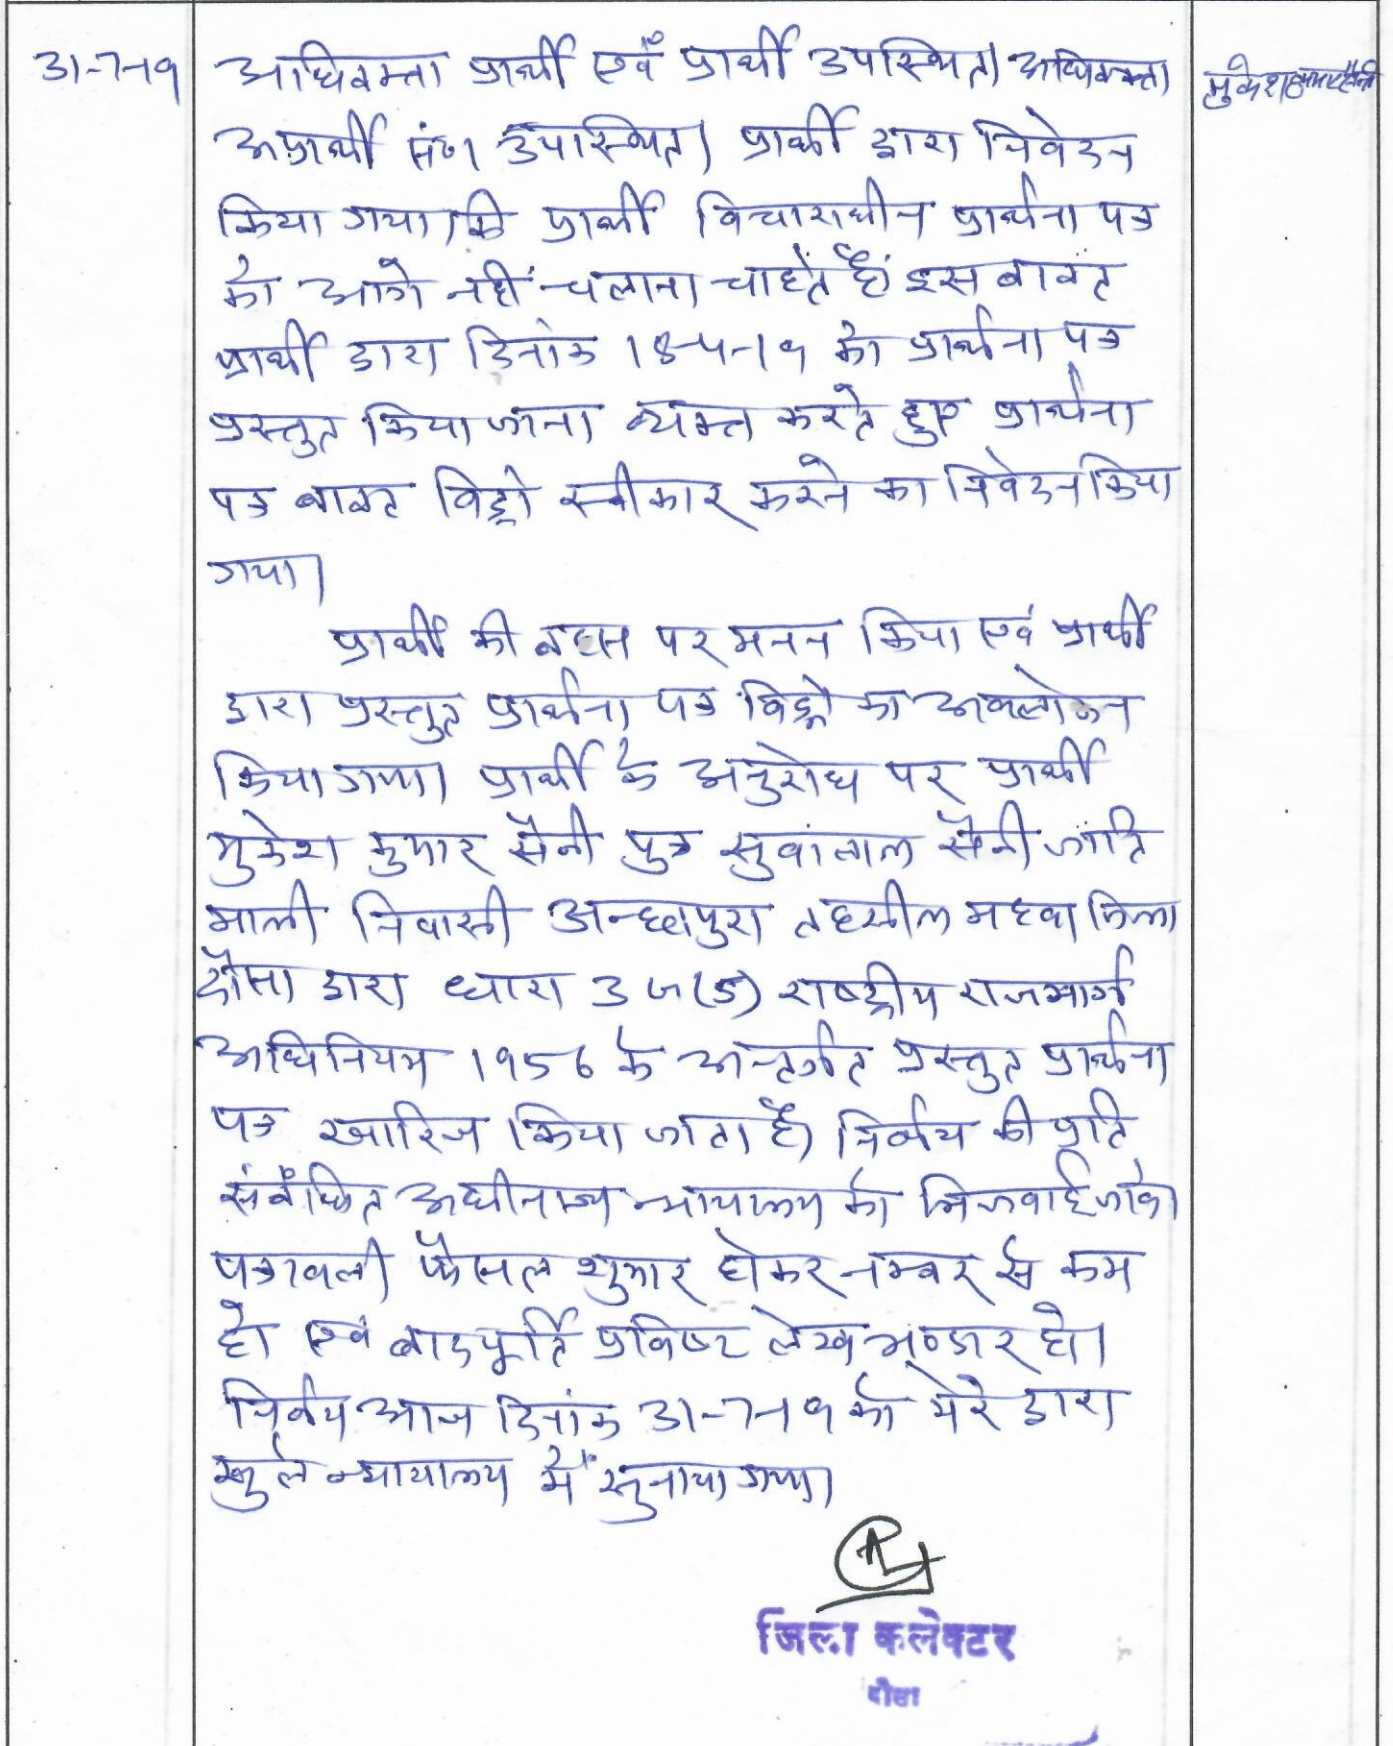 31-7-19 अधिवक्ता प्रार्थी एवं प्रार्थी उपस्थित। अधिवक्ता मुकेश कुमार सैनी
अप्रार्थी उपस्थित। प्रार्थी द्वारा निवेदन
किया गया कि प्रार्थी विचाराधीन प्रार्थना पत्र
को आगे नहीं चलाना चाहते हैं इस बाबत
प्रार्थी द्वारा दिनांक 18-4-19 को प्रार्थना पत्र
प्रस्तुत किया जाना व्यक्त करते हुए प्रार्थना
पत्र बाबत विड्रो स्वीकार करने का निवेदन किया
गया।
प्रार्थी की बहस पर मनन किया एवं प्रार्थी
द्वारा प्रस्तुत प्रार्थना पत्र विड्रो का अवलोकन
किया गया। प्रार्थी के अनुरोध पर प्रार्थी
मुकेश कुमार सैनी पुत्र सुवालाल सैनी जाति
माली निवासी तहसील महवा जिला
दौसा द्वारा धारा 3 जी(5) राष्ट्रीय राजमार्ग
अधिनियम 1956 के अन्तर्गत प्रस्तुत प्रार्थना
पत्र खारिज किया जाता है। निर्णय की प्रति
संबंधित अधीनस्थ न्यायालय को भिजवाई जावे।
पत्रावली फैसल शुमार होकर नम्बर से कम
हो एवं बादपूर्ति प्रविष्ट लेख भण्डार हो।
निर्णय आज दिनांक 31-7-19 को मेरे द्वारा
खुले न्यायालय में सुनाया गया।
जिला कलेक्टर
दौसा